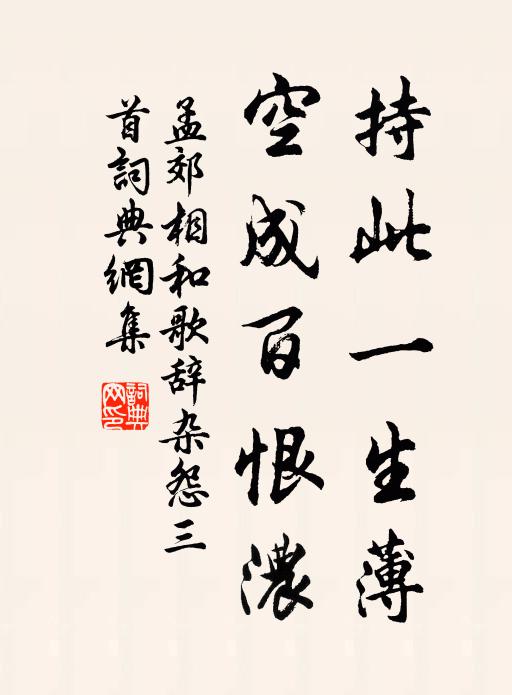 持此一生薄
空成百恨濃
孟郊相和歌辞杂怨三
首詞典網集
詞典网印